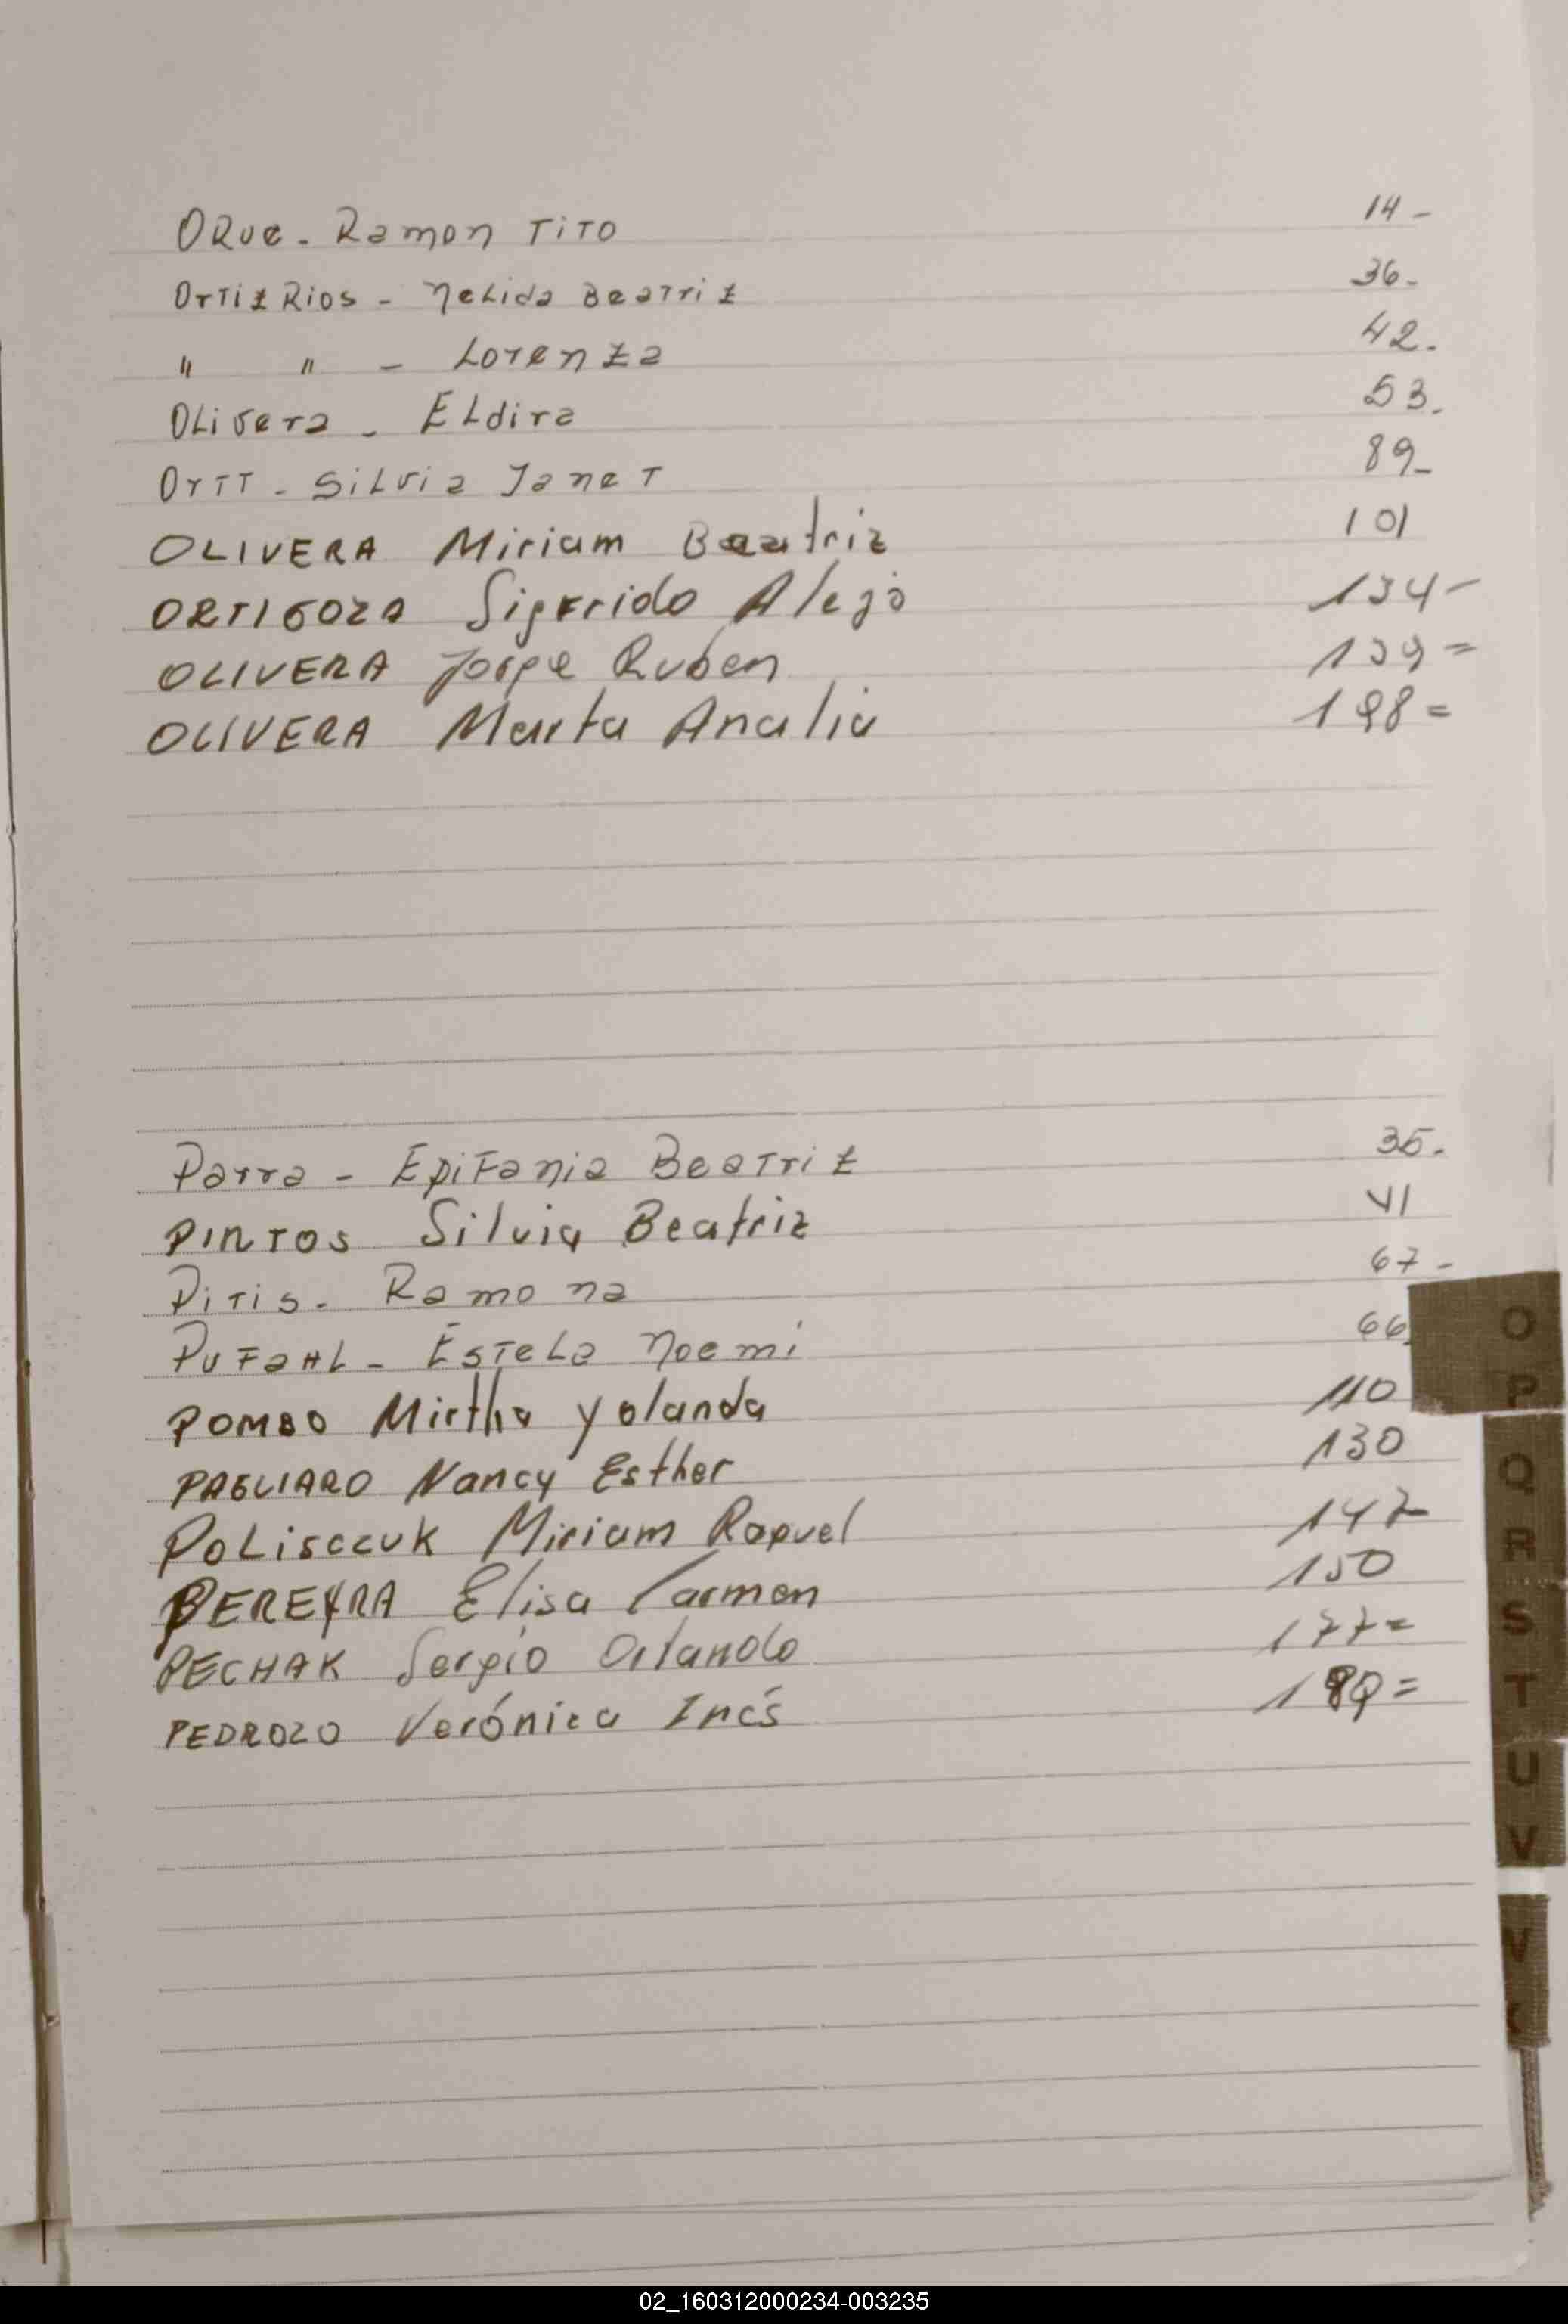 ORUE - Ramon TiTO 14 -
OrTiz Rios - Nelida BeaTriz 36 -
" " - Lorenza 42.
OLivera - ELdira 53.
OrTT - SiLvia JaneT 89 -
OLIVERA Miriam Beatriz 101
ORTIGOZA Sigfrido Alejo 134 -
OLIVERA Jorge Ruben 139 =
OLIVERA Marta Analia 198 =
Parra - EpiFania BeaTriz 35.
PINTOS Silvia Beatriz 41
PiTis - Ramona 67 -
PuFaHL - ESTeLa Noemi 66
POMBO Mirtha Yolanda 110
PAGLIARO Nancy Esther 130
PoLisccuk Miriam Raquel 147
PEREYRA Elisa Carmen 150
PECHAK Sergio Orlando 177 =
PEDROZO Verónica Inés =
O
P
Q
R
S
T
U
V
V
02_160312000234-003235